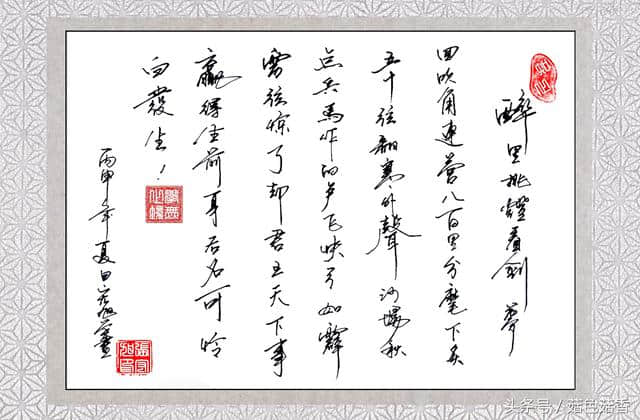 醉里挑燈看劍夢
回吹角連營八百里分麾下炙
五十弦翻塞外聲沙場秋
点兵馬作的卢飞快弓如霹
雳弦惊了却君王天下事
赢得生前身后名可怜
白發生！
丙申年夏日
头条号 / 菇邑菇香